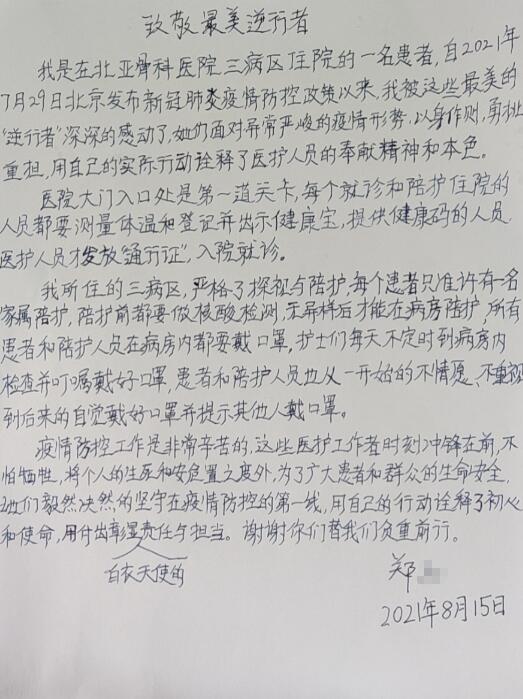 致敬最美逆行者
我是在北亚骨科医院三病区住院的一名患者，自2021年
7月29日北京发布新冠肺炎疫情防控政策以来，我被这些最美的
“逆行者”深深的感动了，她们面对异常严峻的疫情形势，以身作则，勇挑
重担，用自己的实际行动诠释了医护人员的奉献精神和本色。
医院大门入口处是第一道关卡，每个就诊和陪护住院的
人员都要测量体温和登记并出示健康宝，提供健康码的人员，
医护人员才发放“通行证”，入院就诊。
我所住的三病区，严格了探视与陪护，每个患者只准许有一名
家属陪护，陪护前都要做核酸检测，无异样后才能在病房陪护，所有
患者和陪护人员在病房内都要戴口罩，护士们每天不定时到病房内
检查并叮嘱戴好口罩，患者和陪护人员也从一开始的不情愿、不重视
到后来的自觉戴好口罩并提示其他人戴口罩。
疫情防控工作是非常辛苦的，这些医护工作者时刻冲锋在前，不
怕牺牲，将个人的生死和安危置之度外，为了广大患者和群众的生命安全，
她们毅然决然的坚守在疫情防控的第一线，用自己的行动诠释了初心
和使命，用付出彰显责任与担当。谢谢你们替我们负重前行。
白衣天使的
郑
2021年8月15日